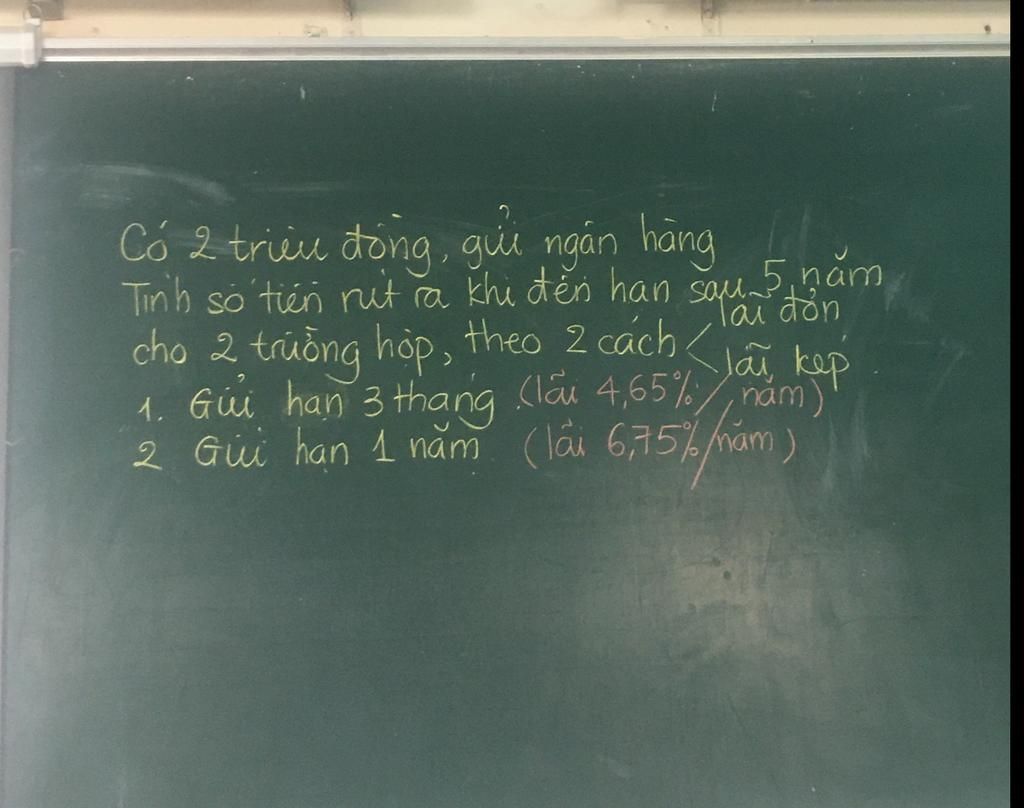 Có 2 triệu đồng, gửi ngân hàng
Tính số tiền rút ra khi đến hạn sau 5 năm
cho 2 trường hợp, theo 2 cách < lãi đơn
lãi kép.
1. Gửi hạn 3 tháng (lãi 4,65%/năm)
2 Gửi hạn 1 năm (lãi 6,75%/năm)